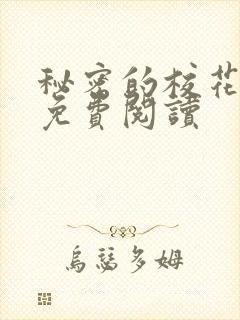 秘密的校花
免費閱讀
烏瑟多姆